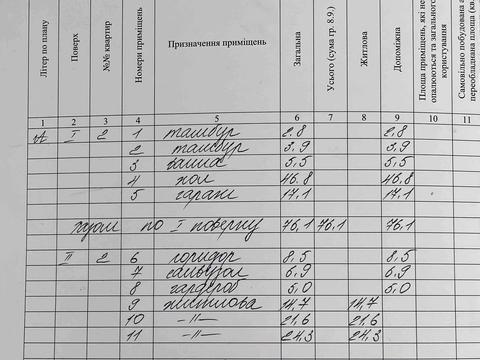 Літер по плану | Поверх | №№ квартир | Номери приміщень | Призначення приміщень | Загальна | Усього (сума гр. 8.9.) | Житлова | Допоміжна | Площа приміщень, які не опалюються та загального користування | Самовільно побудована а переобладнана площа (кв.
1 2 3 4 5 6 7 8 9 10 11
А I 2 1 тамбур 2.8 2.8
2 тамбур 3,9 3,9
3 5,5 5,5
4 хол 46.8 46.8
5 гараж 17,1 17,1
по I поверху 76,1 76,1 76,1
II 2 6 коридор 8,5 8,5
7 санвузол 6,9 6,9
8 гардероб 5,0 5,0
9 14,7 14,7
10 -//- 21,6 21,6
11 -//- 24,3 24,3